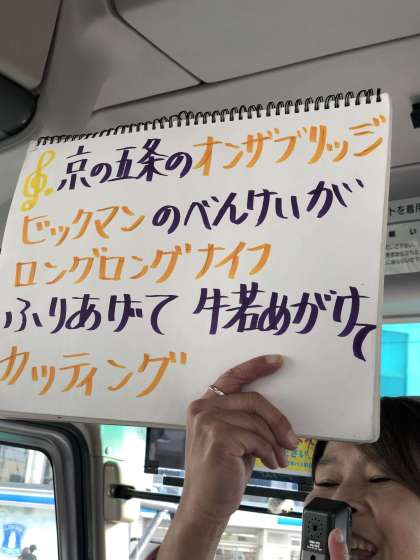 京の五条のオンザブリッジ
ビックマンのべんけいが
ロングロングナイフ
ふりあげて 牛若めがけて
カッティング